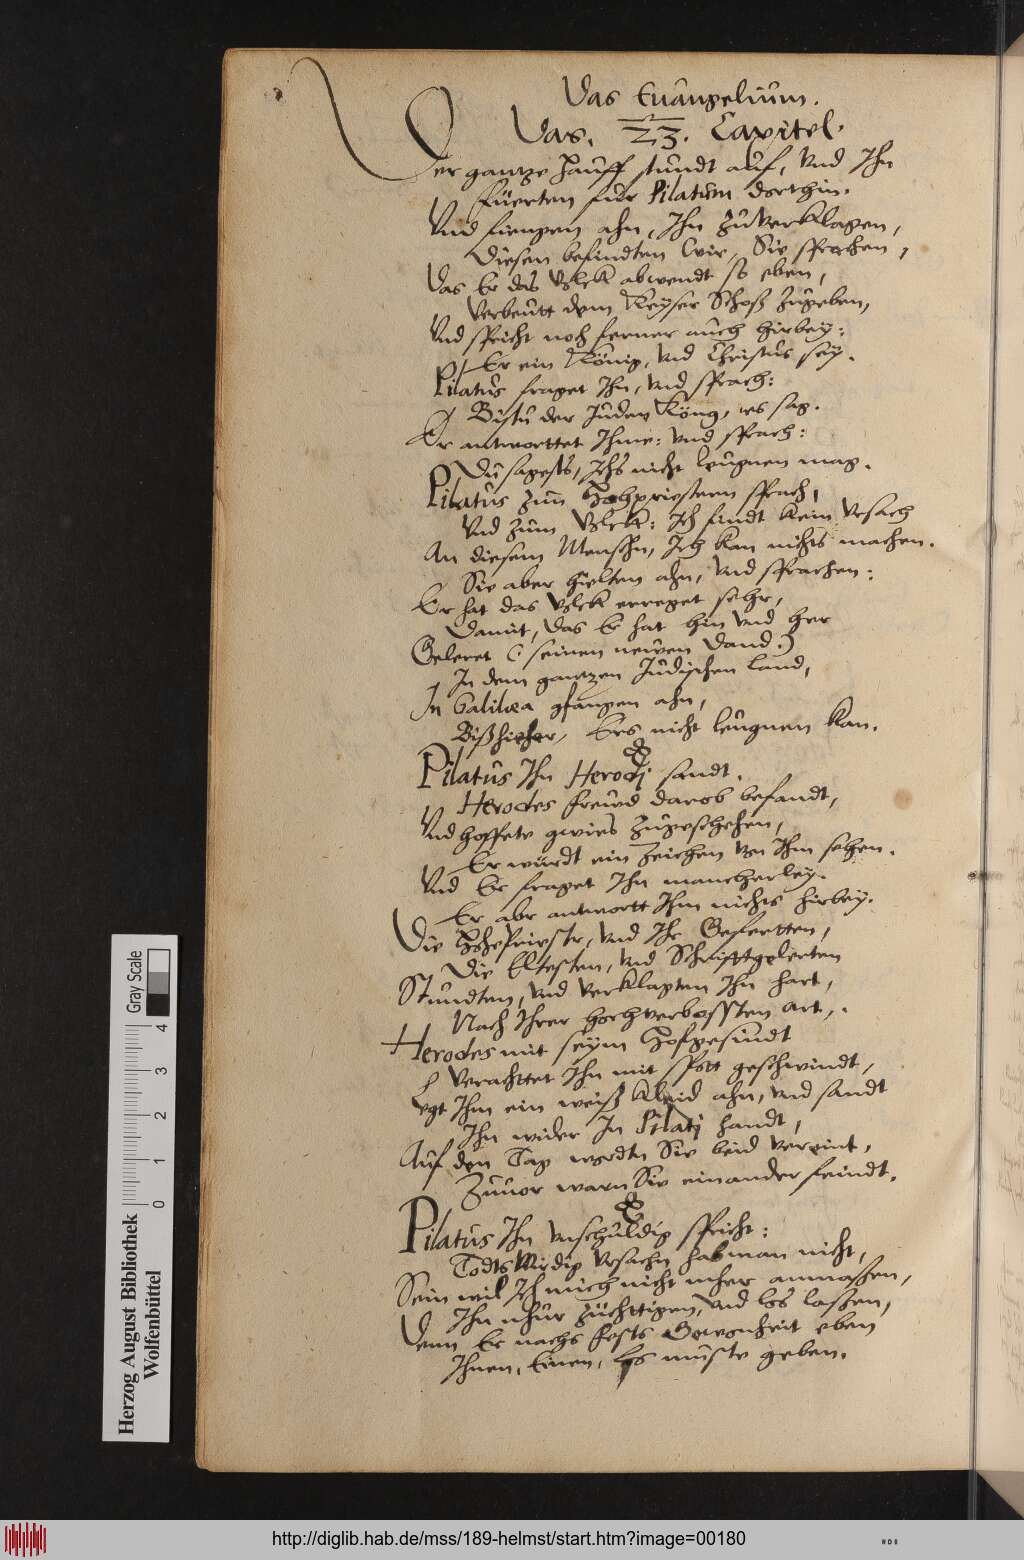 Das Euangelium.
Das. 23. Capitel.
Der gantze Hauff stundt auf, vnd Ihn
Füerten für Pilatum dorthin.
Vnd fiengen ahn, Ihn zu verklagen,
Diesen befindten wir, Sie sprachen,
Das Er das Volck abwendt so eben,
Verbeutt dem Keyser Schoß zugeben,
Vnd spricht noch ferner auch hirbey:
Er ein König, vnd Christus sey.
Pilatus fraget Ihn, vnd sprach:
Bistu der Juden König, es sag.
Er antworttet Ihme: vnd sprach:
Du sagests, Ichs nicht leugnen mag.
Pilatus zun Hohpriestern sprach,
Vnd zum Volck: Ich findt kein Vrsach
An diesem Menschn, Ich kan nichts machen.
Sie aber hielten ahn, vnd sprachen:
Er hat das Volck erreget sehr,
Damit, das Er hat hin vnd her
Geleret (seinen newen Dand.)
In dem gantzen Judischen land,
In Galilæa gfangen ahn,
Bißhieher, Ers nicht leugnen kan.
Pilatus Ihn Herodj sandt.
Herodes freud darob befandt,
Vnd hoffete gwies zugeschehen,
Er würdt ein Zeichen von Ihm sehen.
Vnd Er fraget Ihn mancherley.
Er abr antwortt Ihm nichts hirbey.
Die Hohepriestr, vnd Ihr Geferten,
Die Eltesten, vnd Schrifftgelerten
Stundten, vnd verklagten Ihn hart,
Nach Ihrer hochverbossten art,.
Herodes mit seym Hofgesindt
Verachttet Ihn mit spott geschwindt,
Legt Ihm ein weiß kleid ahn, vnd sandt
Ihn wider In Pilatj handt,
Auf den Tag wordtn Sie beid vereint,
Zuuor warn Sie einander feindt.
Pilatus Ihn vnschuldig spricht:
Todts Wirdig Vrsachn hab man nicht,
Sein wil Ich mich nicht mher anmaßen,
Ihn nhur züchttigen, vnd los laßen,
Denn Er nachs Fests Gewonheit eben
Ihnen, Einen, los muste geben.
Herzog August Bibliothek
Wolfenbüttel
0 1 2 3 4
Gray Scale
http://diglib.hab.de/mss/189-helmst/start.htm?image=00180